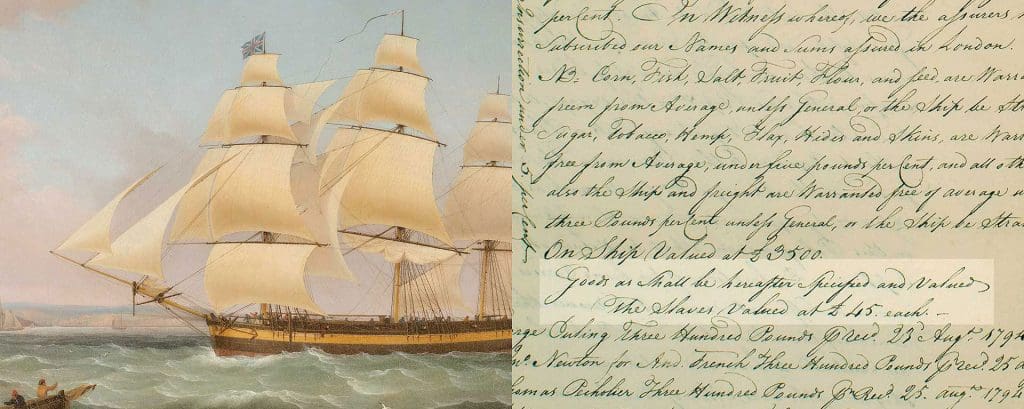 per Cent. In Witness whereof, we the assurers
Subscribed our Names and Sums assured in London.
NB: Corn, Fish, Salt, Fruit, Flour, and seed, are Warra
freem from Average, unless General, or the Ship be Stra
Sugar, Tobacco, Hemp, Flax, Hides and Skins, are Warr
free from Average, under five pounds per Cent, and all oth
also the Ship and freight are Warranted free of average u
three Pounds per Cent unless General, or the Ship be Stra
On Ship Valued at £3500.
Goods as Shall be hereafter Specified and Valued
The Slaves Valued at £45 each. –
Three Hundred Pounds P Recd. 25 Augt. 1794
Newton for And. French Three Hundred Pounds P Recd. 25 a
Three Hundred Pounds P Recd. 25. augt. 1794
Insurrection under 5 per Cent